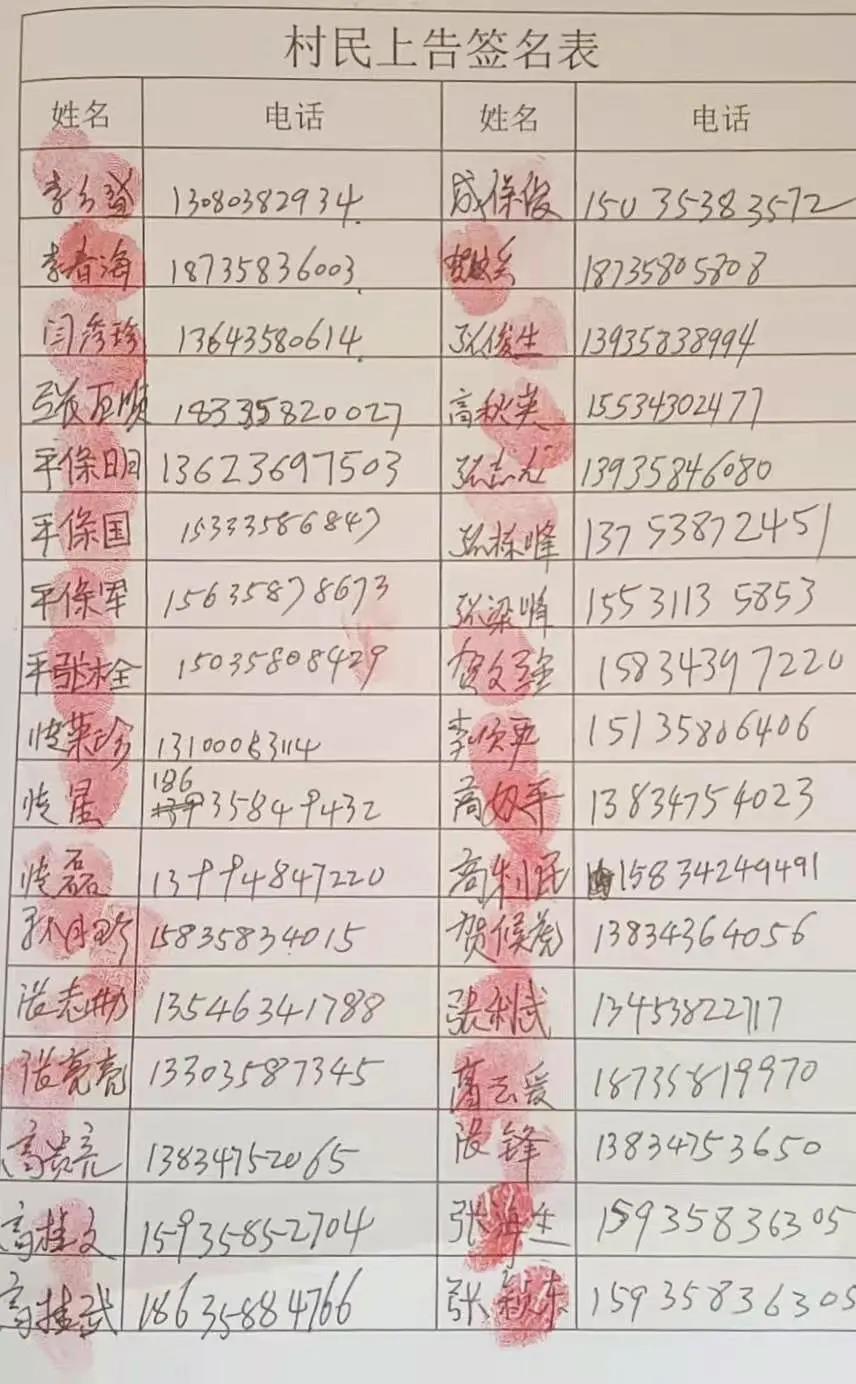 村民上告签名表
姓名 电话 姓名 电话
13080382934 成保俊 15035383572
李春海 18735836003 18735805808
闫秀珍 13643580614 张俊生 13935838994
张百顺 18335820027 高秋英 15534302477
平保明 13623697503 张志龙 13935846080
平保国 15333586847 张栋峰 13753872451
平保军 15635878673 张梁峰 15531135853
平张栓 15035808429 贺文强 15834397220
13100063114 李顺平 15135806406
星 18635849432 高奴平 13834754023
磊 13994847220 高利民 15834249491
15835834015 贺候虎 13834364056
张志彬 13546341788 张利武 13453822717
张亮亮 13303587345 高云爱 18735819970
高贵亮 13834752065 张锋 13834753650
高桂文 15935852704 张海生 15935836305
高桂武 18635884766 张秋东 15935836305